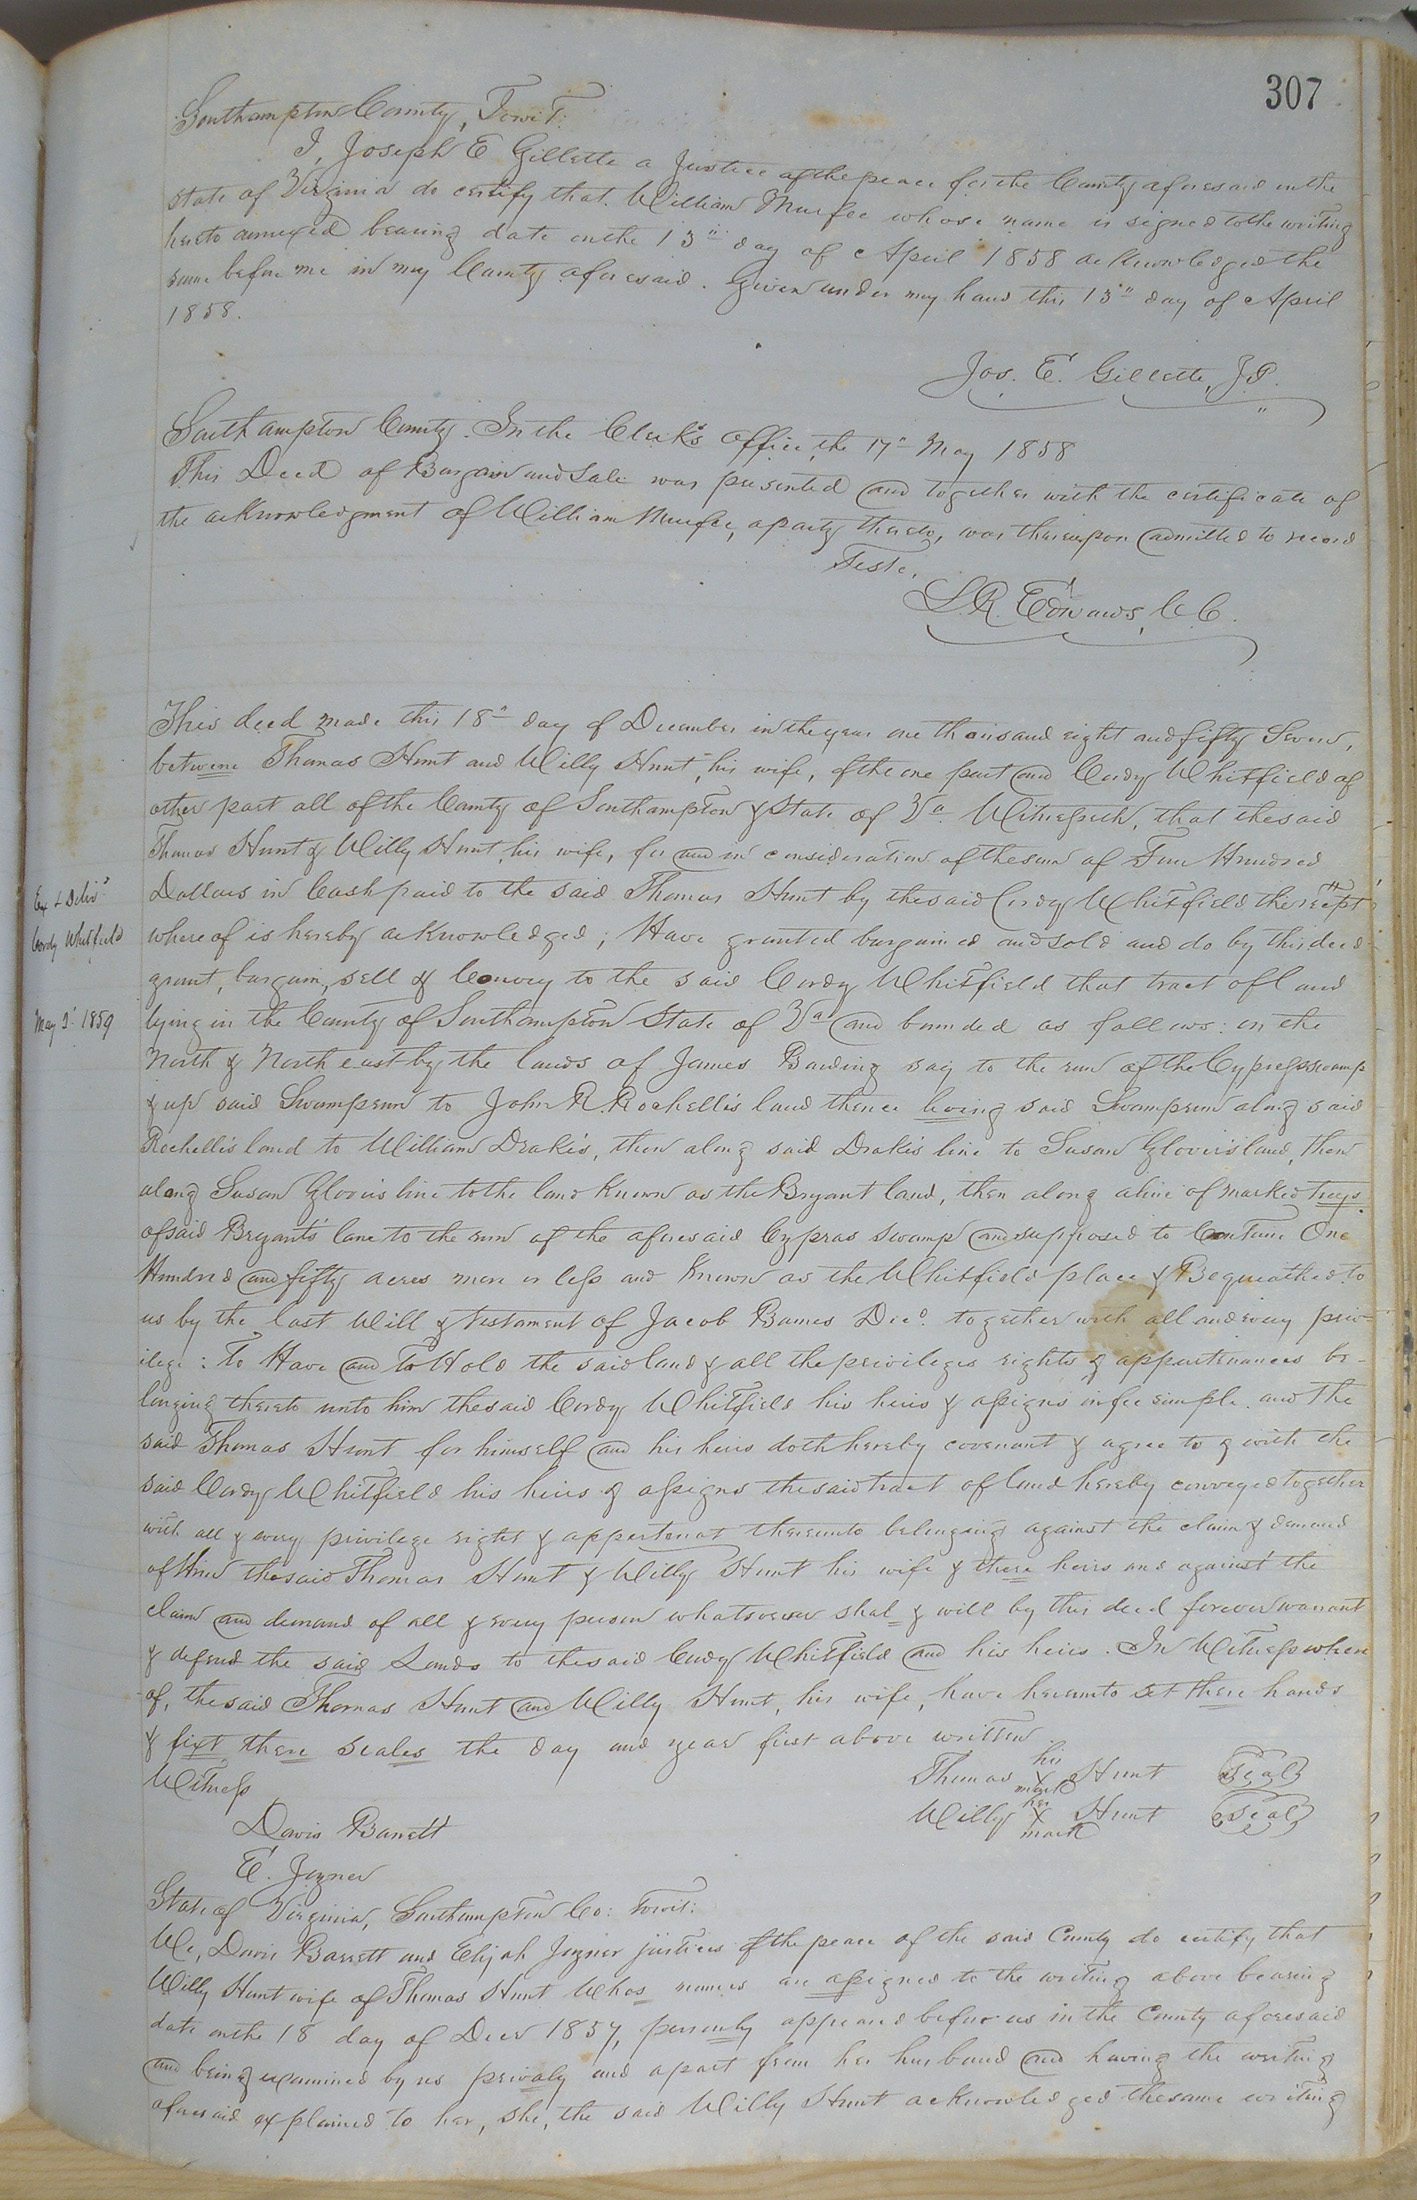 307
Southampton County, Towit:
I, Joseph E Gillette a Justice of the peace for the County aforesaid in the
state of Virginia do certify that William Murfee whose name is signed to the writing
hereto annexed bearing date on the 13" day of April 1858 acknowledged the
same before me in my County aforesaid. Given under my hand this 13" day of April
1858.
Jos. E. Gillette, J.P.
Southampton County. In the Clerk's Office, the 17" May 1858
This Deed of Bargain and Sale was presented and together with the certificate of
the acknowledgment of William Murfee, a party thereto, was thereupon admitted to record
Teste,
L. R. Edwards, C C.
This deed made this 18" day of December in the year one thousand eight and fifty Seven,
betweene Thomas Hunt and Willy Hunt, his wife, of the one part and Cordy Whitfield of
other part all of the County of Southampton & State of Va. Witnesseth, that the said
Thomas Hunt & Willy Hunt, his wife, for and in consideration of the sum of Four Hundred
Dollars in Cash paid to the said Thomas Hunt by the said Cordy Whitfield the
whereof is hereby acknowledged; Have granted bargained and sold and do by this deed
grant, bargain, sell & Convey to the said Cordy Whitfield that tract of land
Ex & Deliv.d
Cordy Whitfield
May 1859
lying in the County of Southampton State of Va and bounded as follows: on the
North & North east by the lands of James Barding say to the run of the Cypress swamp
& up said Swamp run to John R. Rochelle's land thence living said Swamp run along said
Rochelle's land to William Drake's, then along said Drake's line to Susan Glover's land, then
along Susan Glover's line to the land known as the Bryant land, then along a line of marked treys
of said Bryant's lane to the run of the aforesaid Cypras swamp and supposed to Contain One
Hundred and fifty acres more or less and known as the Whitfield place & Bequeathed to
us by the last Will & testament of Jacob Barnes Decd. together with all and every priv-
ilege: To Have and To Hold the said land & all the privileges rights & appurtenances be-
longing thereto unto him the said Cordy Whitfield his heirs & assigns in fee simple. and the
said Thomas Hunt for himself and his heirs doth hereby covenant & agree to & with the
said Cordy Whitfield his heirs & assigns the said tract of land hereby conveyed together
with all & every privilege right & appertenat thereunto belonging against the claim & demand
of Him the said Thomas Hunt & Willy Hunt his wife & there heirs and against the
claim and demand of all & every person whatsoever shal & will by this deed forever warrant
& defend the said Lands to the said Cordy Whitfield and his heirs. In Witness where
of, the said Thomas Hunt and Willy Hunt, his wife, have hereunto set there hands
& fixt there seales the day and year first above written
Witness
Thomas his X mark Hunt Seal
Willy her X mark Hunt Seal
Davis Barrett
E. Joyner
State of Virginia, Southampton Co: towit:
We, Davis Barrett and Elijah Joyner justices of the peace of the said County do certify that
Willy Hunt wife of Thomas Hunt Whos names are assigned to the writing above bearing
date on the 18 day of Decr 1857, personly appeared before us in the County aforesaid
and being examined by us privaly and apart from her husband and having the writing
aforesaid explained to her, she, the said Willy Hunt acknowledged the same writing